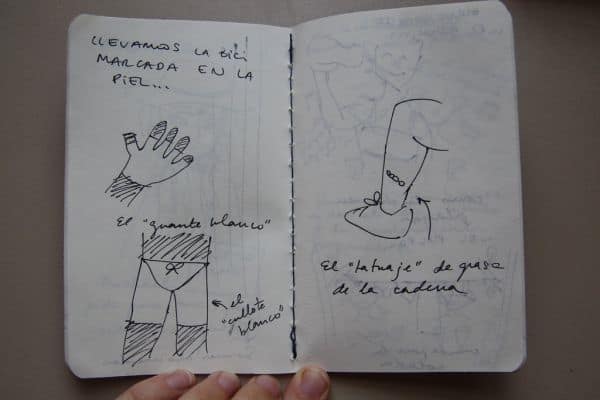 LLEVAMOS LA BICI
MARCADA EN LA
PIEL...
El "guante blanco"
el
"cullote
blanco"
El "tatuaje" de grasa
de la cadena